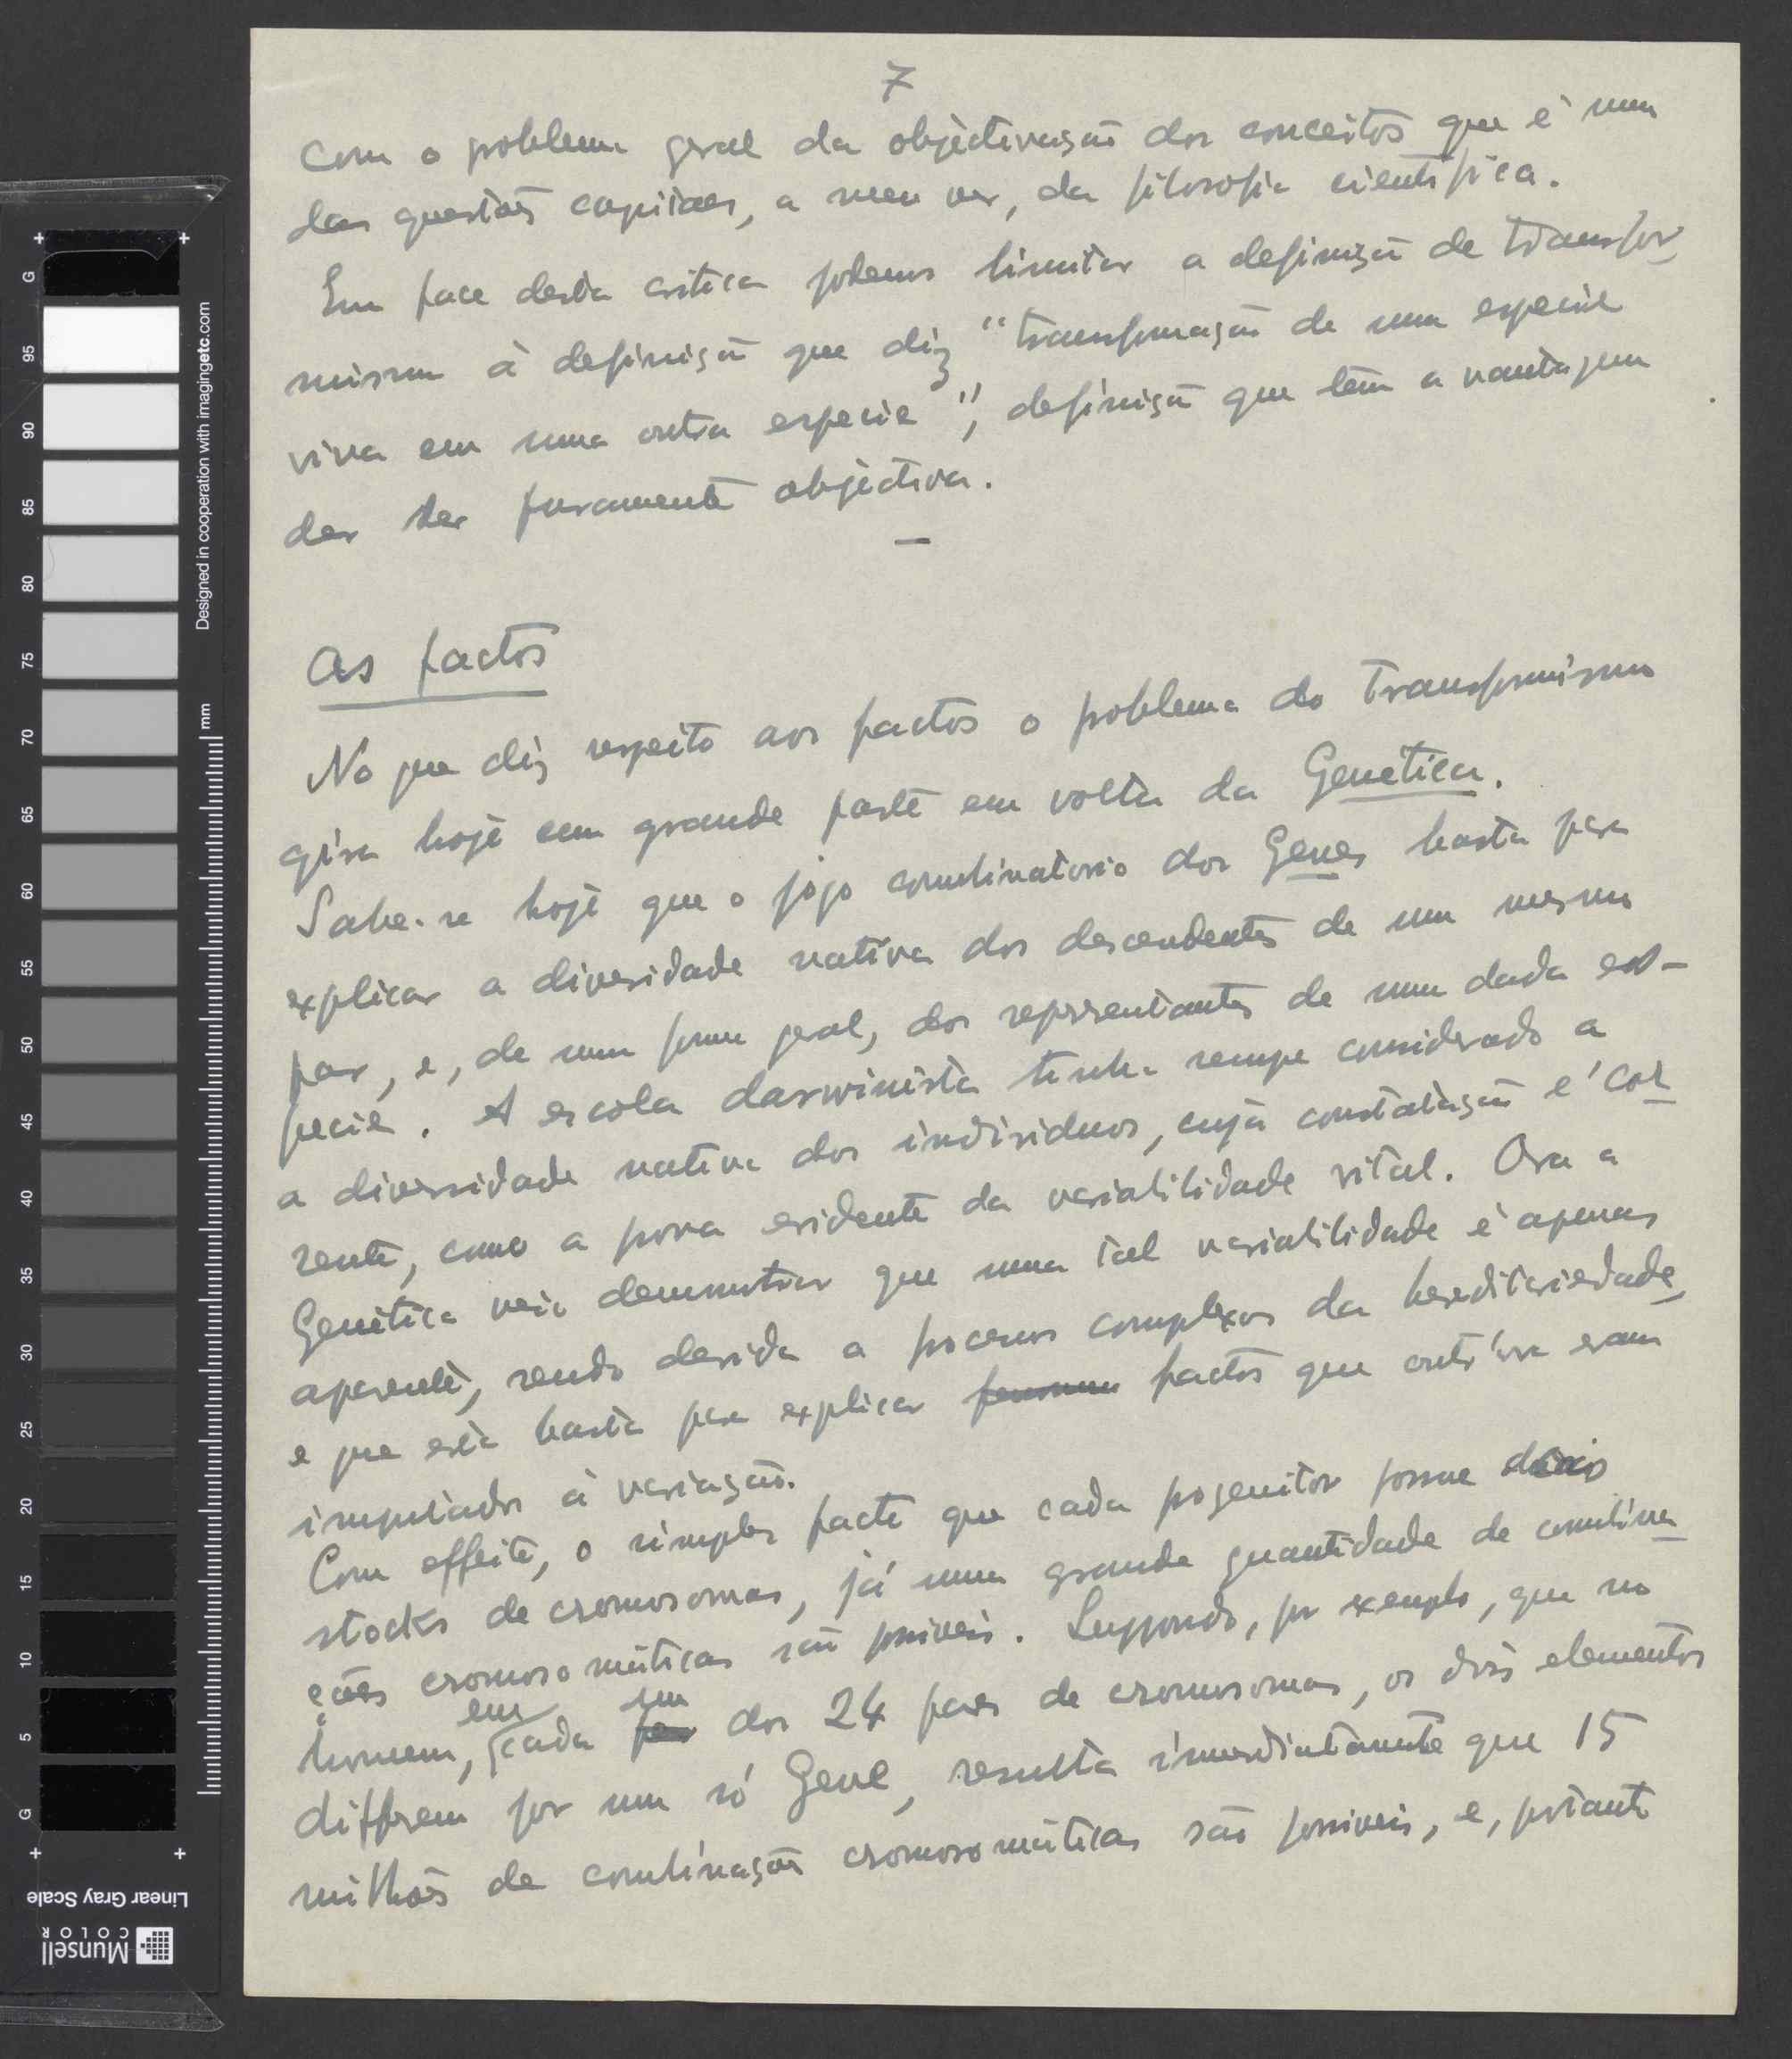 7
com o problema geral da objectivação dos conceitos que é uma
das questões capitaes, a meu ver, da filosofia cientifica.
Em face desta critica podemos limitar a definição de transfor
mismo à definição que diz "transformação de uma especie
viva em uma outra especie", definição que têm a vantagem
de ser puramente objectiva.
—
Os factos
No que diz respeito aos factos o problema do Transformismo
gira hoje em grande parte em volta da Genetica.
Sabe-se hoje que o jogo combinatorio dos Genes basta para
explicar a diversidade nativa dos descendentes de um mesmo
par, e, de uma forma geral, dos representantes de uma dada es-
pecie. A escola darwinista tinha sempre considerado a
a diversidade nativa dos individuos, cuja constatação é cor
rente, como a prova evidente da variabilidade vital. Ora a
Genética veio demonstrar que uma tal variabilidade é apenas
aparente, sendo devida a processos complexos da hereditariedade,
e que esta basta para explicar factos que outróra eram
imputados à variação.
Com effeito, o simples facto que cada progenitor possue dois
stocks de cromosomas, já uma grande quantidade de combina
ções cromosomáticas são possiveis. Suppondo, por exemplo, que no
homem, em cada um dos 24 pares de cromosomas, os dois elementos
differem por um só Gene, resulta imediatamente que 15
milhões de combinações cromosomáticas são possiveis, e, portanto
Designed in cooperation with imagingetc.com
mm
G 95 90 85 80 75 70 65 60 55 50 45 40 35 30 25 20 15 10 5 G
Linear Gray Scale
Munsell
COLOR